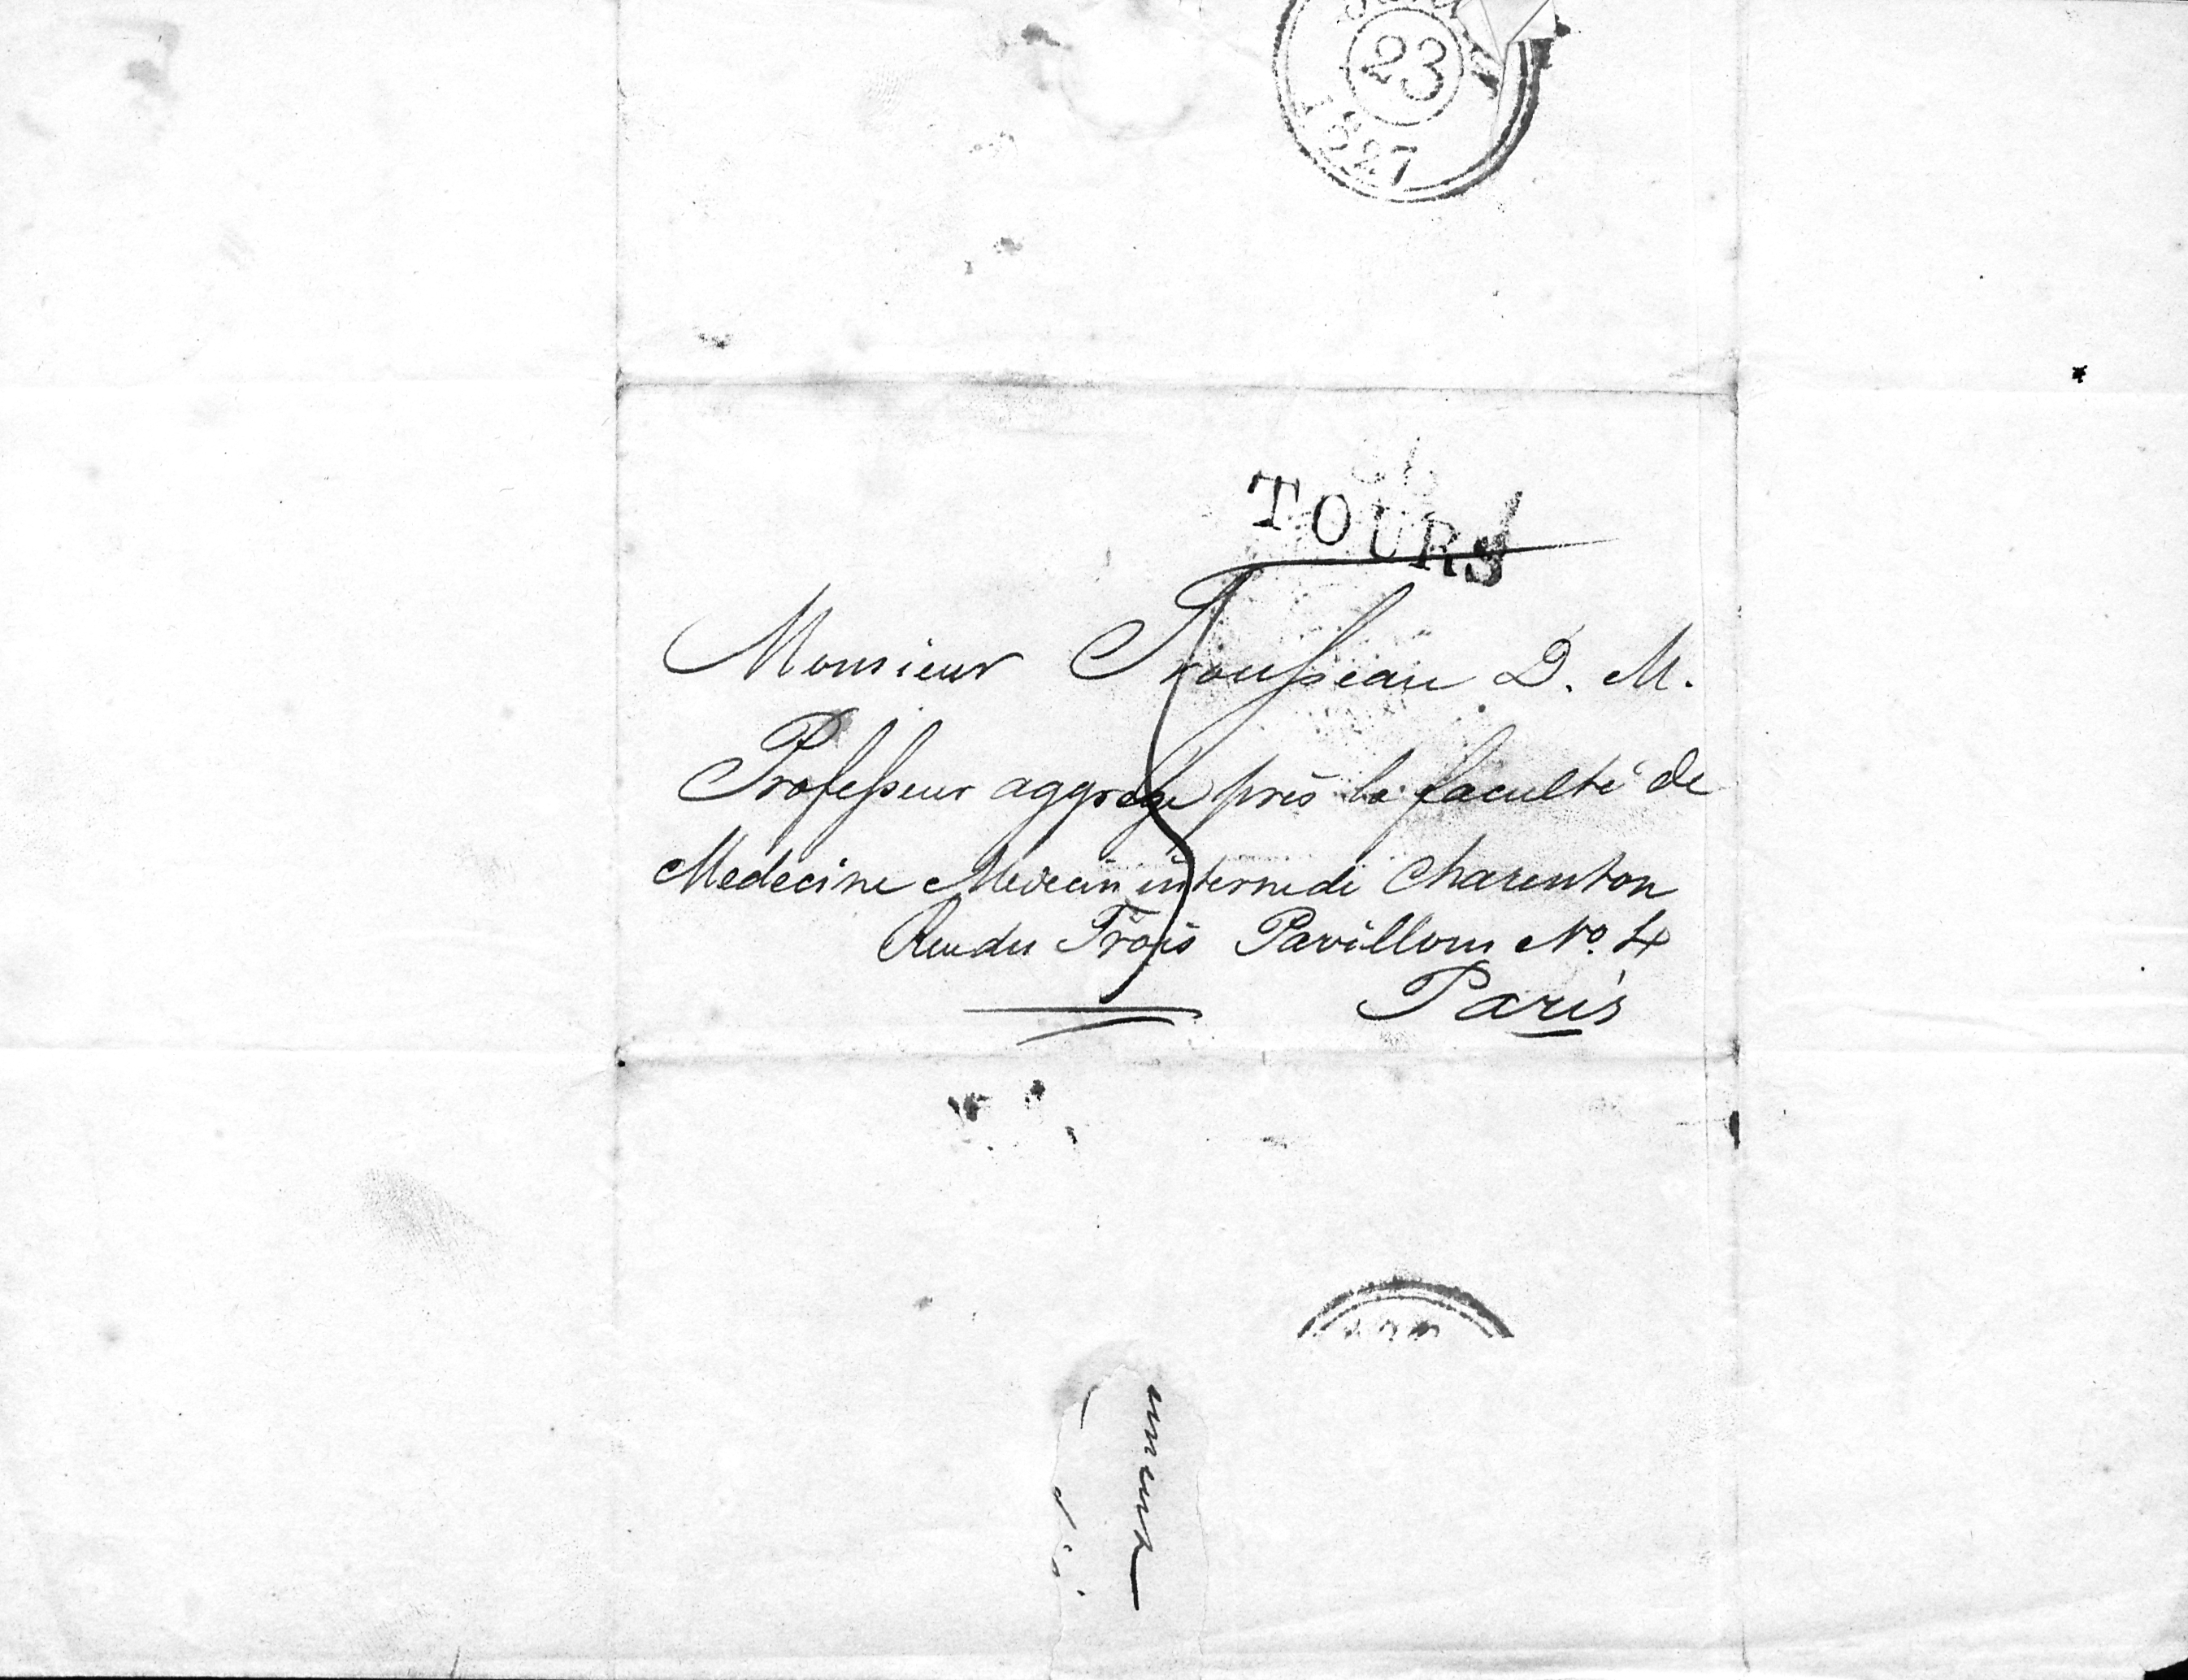 23
1827
TOURS
Monsieur Trousseau D. M.
Professeur aggrege près la faculté de
Medecine Medecin interne de Charenton
Rue des Trois Pavillons No. 4
Paris